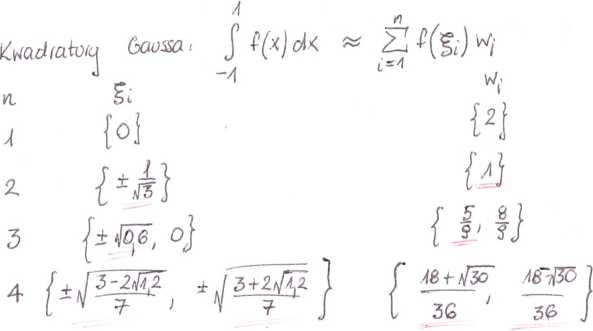 Kwadratury Gaussa: ∫_{-1}^{1} f(x) dx ≈ ∑_{i=1}^{n} f(ξi) wi
n ξi wi
1 {0} {2}
2 {± 1/√3} {1}
3 {± √0,6, 0} {5/9, 8/9}
4 {±√((3-2√1,2)/7), ±√((3+2√1,2)/7)} {(18+√30)/36, (18-√30)/36}